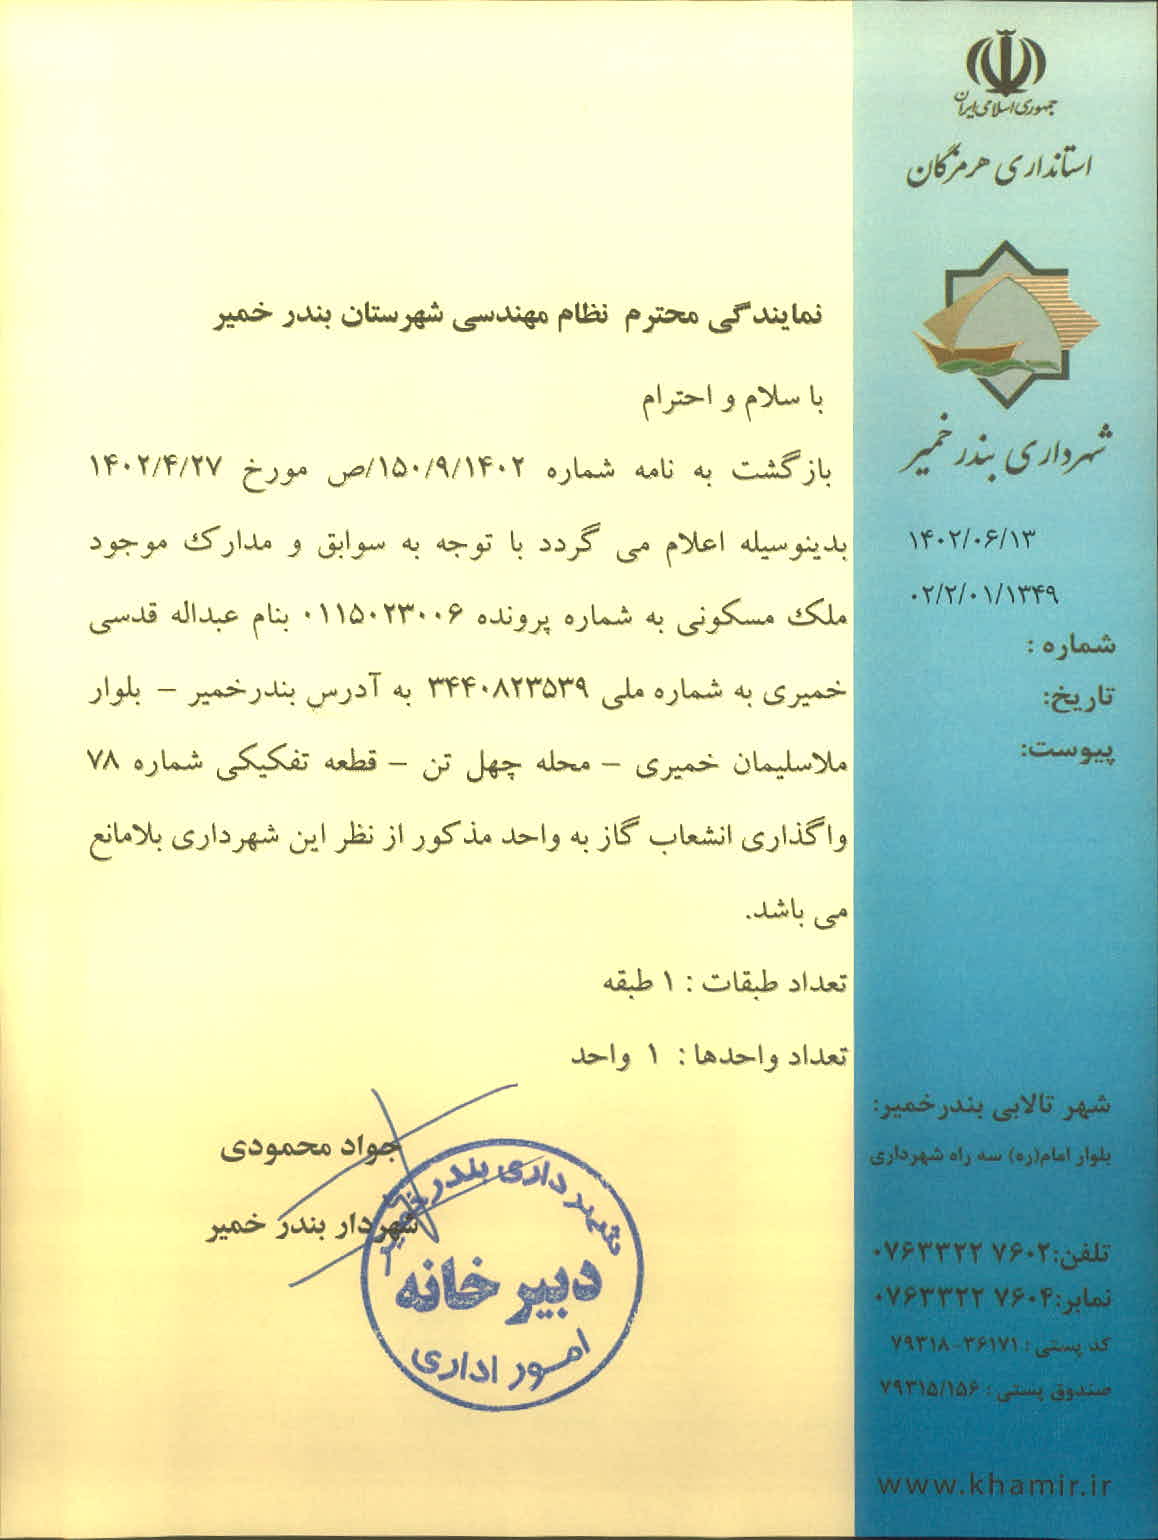 جمهوری اسلامی ایران
استانداری هرمزگان
شهرداری بندر خمیر
۱۴۰۲/۰۶/۱۳
۰۲/۲/۰۱/۱۳۴۹
شماره :
تاریخ:
پیوست:
نمایندگی محترم نظام مهندسی شهرستان بندر خمیر
با سلام و احترام
بازگشت به نامه شماره ۱۵۰/۹/۱۴۰۲/ص مورخ ۱۴۰۲/۴/۲۷
بدینوسیله اعلام می گردد با توجه به سوابق و مدارک موجود
ملک مسکونی به شماره پرونده ۰۱۱۵۰۲۳۰۰۶ بنام عبداله قدسی
خمیری به شماره ملی ۳۴۴۰۸۲۳۵۳۹ به آدرس بندرخمیر – بلوار
ملاسلیمان خمیری – محله چهل تن – قطعه تفکیکی شماره ۷۸
واگذاری انشعاب گاز به واحد مذکور از نظر این شهرداری بلامانع
می باشد.
تعداد طبقات : ۱ طبقه
تعداد واحدها : ۱ واحد
جواد محمودی
شهردار بندر خمیر
شهرداری بندر خمیر
دبیر خانه
امور اداری
شهر تالابی بندرخمیر:
بلوار امام(ره) سه راه شهرداری
تلفن:۷۶۰۲ ۰۷۶۳۳۲۲
نمابر:۷۶۰۴ ۰۷۶۳۳۲۲
کد پستی : ۳۶۱۷۱-۷۹۳۱۸
صندوق پستی : ۷۹۳۱۵/۱۵۶
www.khamir.ir